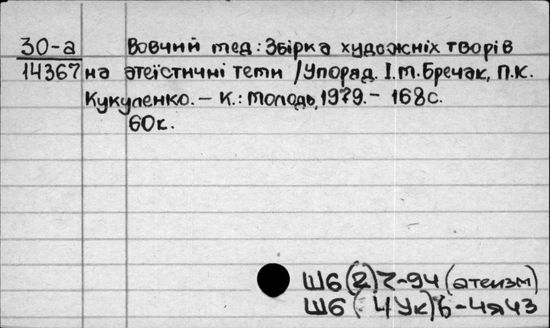 30-а Вовчий мед: Збірка художніх творів
14367 на атеїстичні теми / Упоряд. І.М. Бречак, П.К.
Кукуленко. – К.: Молодь, 1979. – 168с.
60к.
Ш6(2)7-94 (атеизм)
Ш6(4Ук)6-4я43